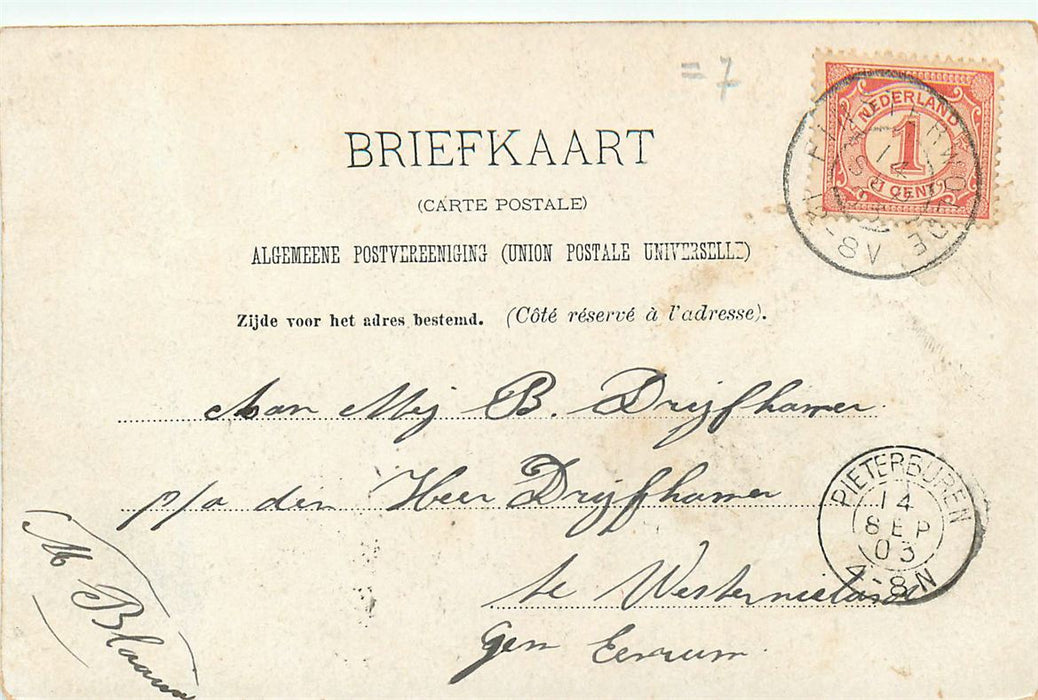 = 7
NEDERLAND
1
1 CENT
8V
BRIEFKAART
(CARTE POSTALE)
ALGEMEENE POSTVEREENIGING (UNION POSTALE UNIVERSELLE)
Zijde voor het adres bestemd. (Côté réservé à l'adresse).
Aan Mej B. Drijfhamer
p/a den Heer Drijfhamer
te Westernieland
Gem Eenrum
M Blaauw
PIETERBUREN
14
SEP
03
4-8N